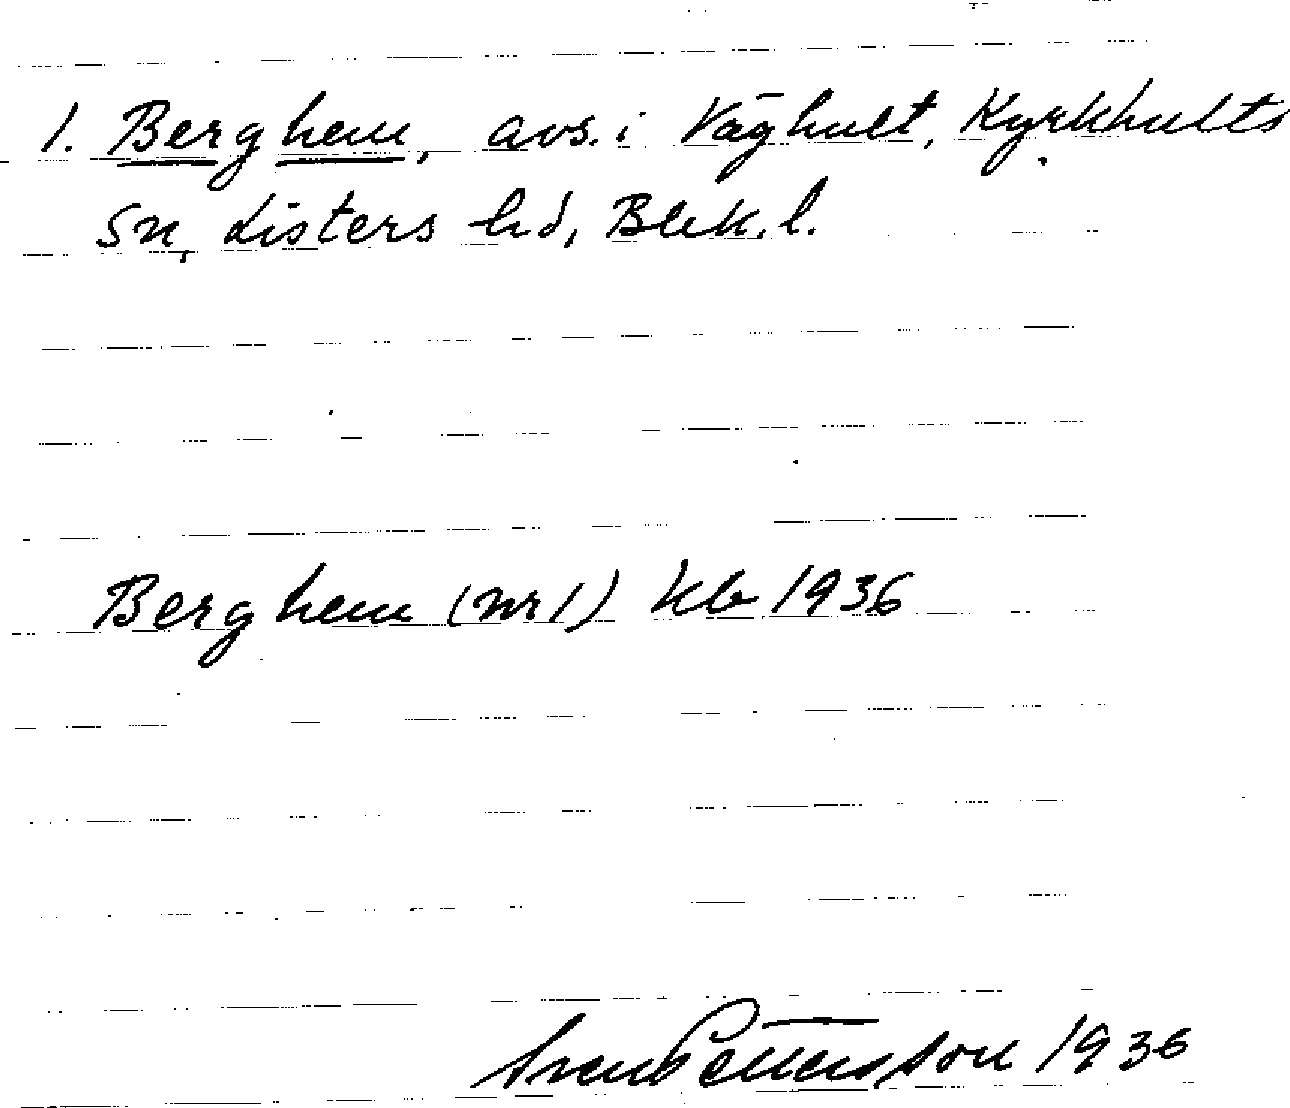 1. Berghem, avs. i Våghult, Kyrkhults
sn, Listers hd, Blek. l.
Berghem (nr 1) kb 1936
Sven Pettersson 1936